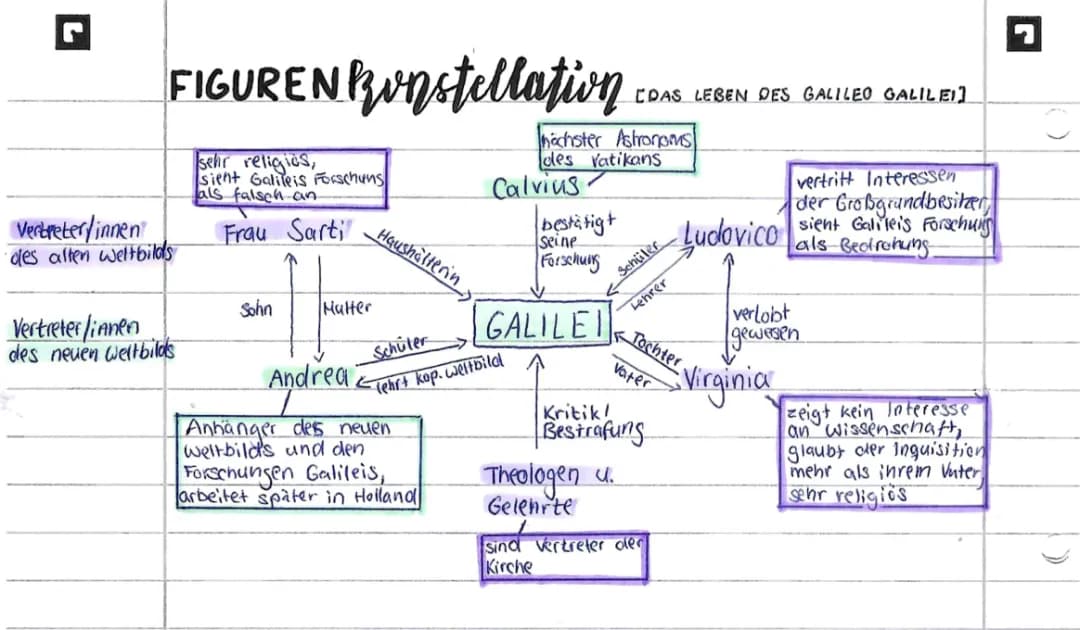 FIGURENKonstellation [DAS LEBEN DES GALILEO GALILEI]
höchster Astronom
des Vatikans
Calvius
sehr religiös,
sieht Galileis Forschung
als falsch an
Frau Sarti
vertritt Interessen
der Großgrundbesitzer,
sieht Galileis Forschung
als Bedrohung
Ludovico
Vertreter/innen
des alten Weltbilds
Vertreter/innen
des neuen Weltbilds
Haushälterin
bestätigt
seine
Forschung
Schüler
Lehrer
Sohn
Mutter
verlobt
gewesen
GALILEI
Schüler
lehrt kop. Weltbild
Tochter
Vater
Andrea
Virginia
Anhänger des neuen
Weltbilds und den
Forschungen Galileis,
arbeitet später in Holland
Kritik/
Bestrafung
zeigt kein Interesse
an Wissenschaft,
glaubt der Inquisition
mehr als ihrem Vater,
sehr religiös
Theologen u.
Gelehrte
sind Vertreter der
Kirche